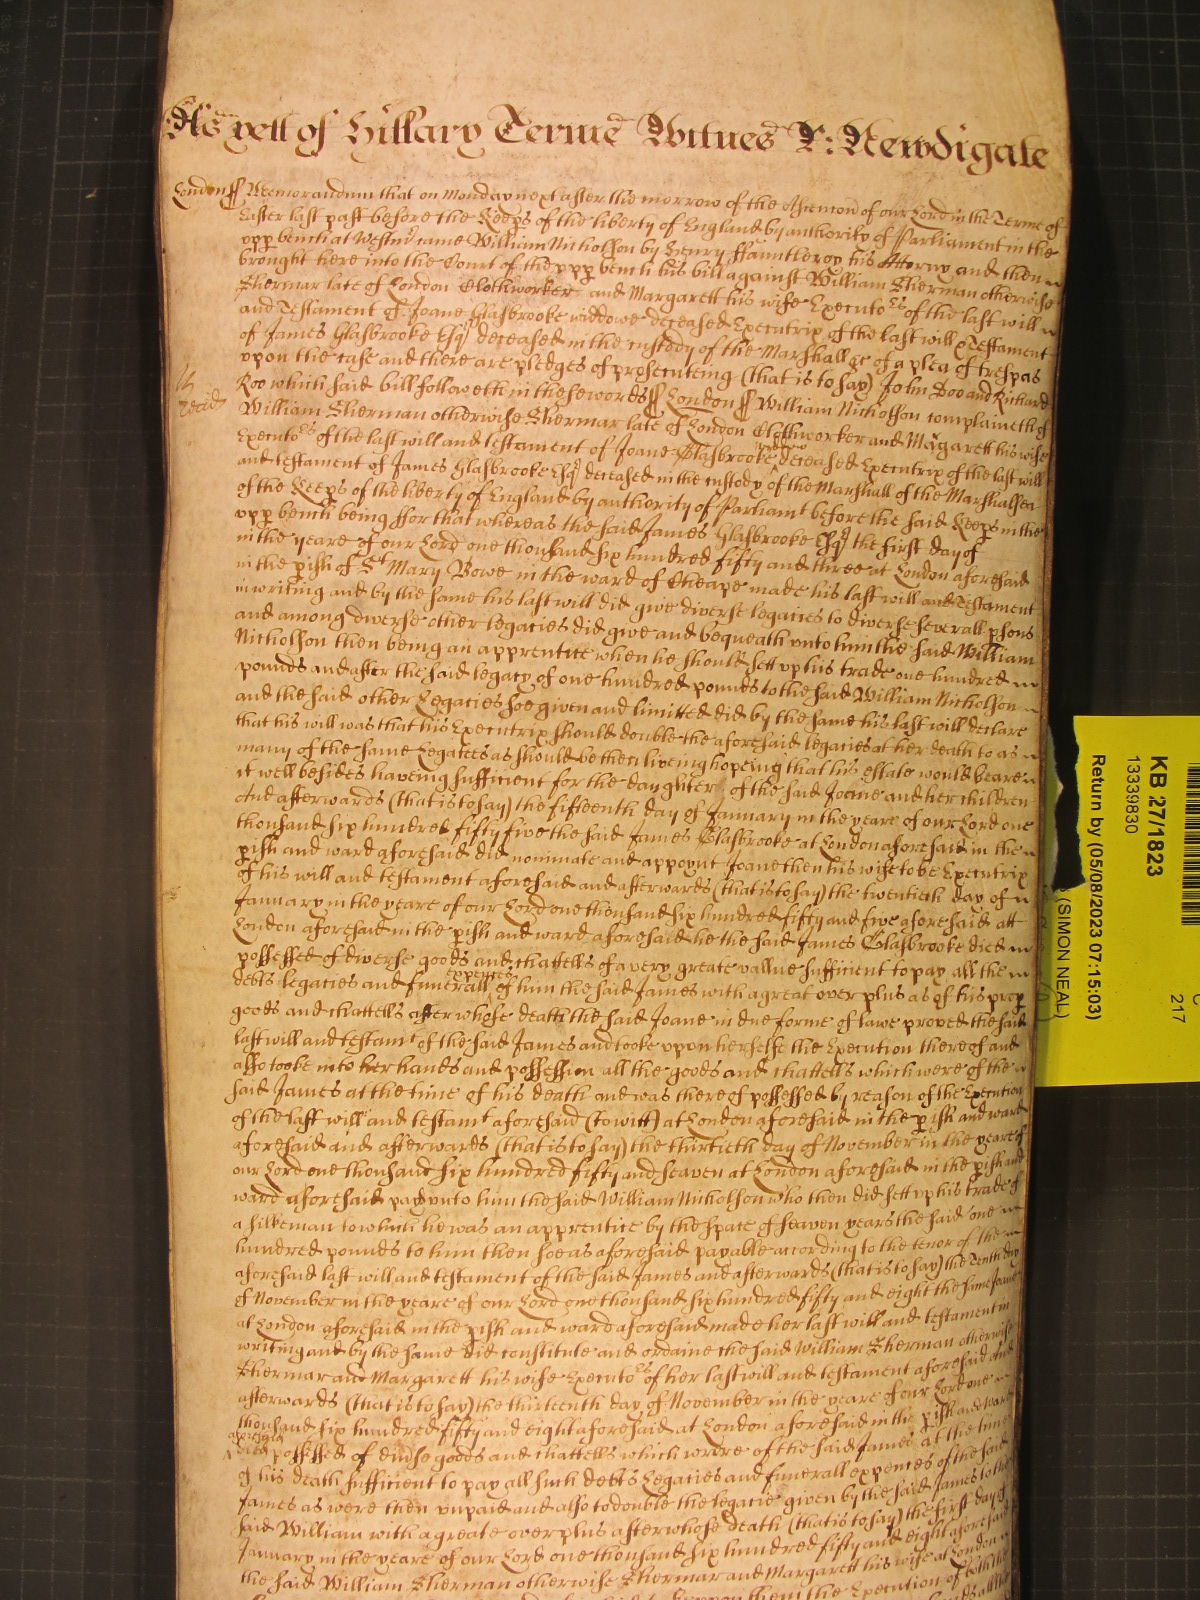 As yett of Hillary Terme Witnes R: Newdigate
London ss Memorandum that on Monday next after the morrow of the Ascencion of our Lord in the Terme of
Easter last past before the Keeps of the liberty of England by authority of Parliament in the
upp bench at Westmr came William Nicholson by Henry ffauntleroy his Attorny and then
brought here into the Court of the upp bench his bill against William Sherman otherwise
Shermar late of London Clothworker and Margarett his wife Executors of the last will
and Testament of Joane Glasbrooke widdowe deceased Executrix of the last will & Testament
of James Glasbrooke Esqr deceased in the custody of the Marshall &c of a plea of trespas
upon the case and there are pledges of prosecuteing (that is to say) John Doo and Richard
Roo which said bill followeth in these words ss London ss William Nicholson complaineth of
William Sherman otherwise Shermar late of London Clothworker and Margarett his wife
Executors of the last will and testament of Joane Glasbrooke widdow deceased Executrix of the last will
and testament of James Glasbrooke Esqr deceased in the custody of the Marshall of the Marshalsea
of the Keeps of the liberty of England by authority of Parliamt before the said Keeps in the
upp bench being ffor that whereas the said James Glasbrooke Esqr the first day of
in the yeare of our Lord one thousand six hundred fifty and three at London aforesaid
in the pish of St Mary Bowe in the ward of Cheape made his last will and Testament
in writing and by the same his last will did give diverse legacies to diverse severall psons
and among diverse other legacies did give and bequeath unto him the said William
Nicholson then being an apprentice when he should sett up his trade one hundred
pounds and after the said legacy of one hundred pounds to the said William Nicholson
and the said other Legacies soe given and limitted did by the same his last will declare
that his will was that his Executrix should double the aforesaid legacies at her death to as
many of the same Legatees as should be then liveing hopeing that his estate would beare
it well besides haveing sufficient for the daughter of the said Joane and her children
And afterwards (that is to say) the fifteenth day of January in the yeare of our Lord one
thousand six hundred fifty five the said James Glasbrooke at London aforesaid in the
pish and ward aforesaid did nominate and appoynt Joane then his wife to be Executrix
of his will and testament aforesaid and afterwards (that is to say) the twentieth day of
January in the yeare of our Lord one thousand six hundred fifty and five aforesaid att
London aforesaid in the pish and ward aforesaid he the said James Glasbrooke died
possessed of diverse goods and chattells of a very greate vallue sufficient to pay all the
debts legacies and funerall expences of him the said James with a great over plus as of his prop
goods and chattells after whose death the said Joane in due forme of lawe proved the said
last will and testamt of the said James and tooke upon herselfe the Execution thereof and
also tooke into her hands and possession all the goods and chattells which were of the
said James at the time of his death and was thereof possessed by reason of the Execution
of the last will and testamt aforesaid (to witt) at London aforesaid in the pish and ward
aforesaid and afterwards (that is to say) the thirtieth day of November in the yeare of
our Lord one thousand six hundred fifty and seaven at London aforesaid in the pish and
ward aforesaid payd unto him the said William Nicholson who then did sett up his trade of
a silkeman to which he was an apprentice by the space of seaven years the said one
hundred pounds to him then soe as aforesaid payable according to the tenor of the
aforesaid last will and testament of the said James and afterwards (that is to say) the Tenth day
of November in the yeare of our Lord one thousand six hundred fifty and eight the same Joane
at London aforesaid in the pish and ward aforesaid made her last will and testament in
writing and by the same did constitute and ordaine the said William Sherman otherwise
Shermar and Margarett his wife Executors of her last will and testament aforesaid and
afterwards (that is to say) the thirteenth day of November in the yeare of our Lord one
thousand six hundred fifty and eight aforesaid at London aforesaid in the pish and ward
aforesaid died possessed of divse goods and chattells which were of the said James at the time
of his death sufficient to pay all such debts Legacies and funerall expences of the said
James as were then unpaid and also to double the legacie given by the said James to the
said William with a greate over plus after whose death (that is to say) the first day of
January in the yeare of our Lord one thousand six hundred fifty and eight aforesaid
the said William Sherman otherwise Shermar and Margarett his wife at London
upon them the Execution of
KB 27/1823
13339830
Return by (05/08/2023 07:15:03)
(SIMON NEAL)
217